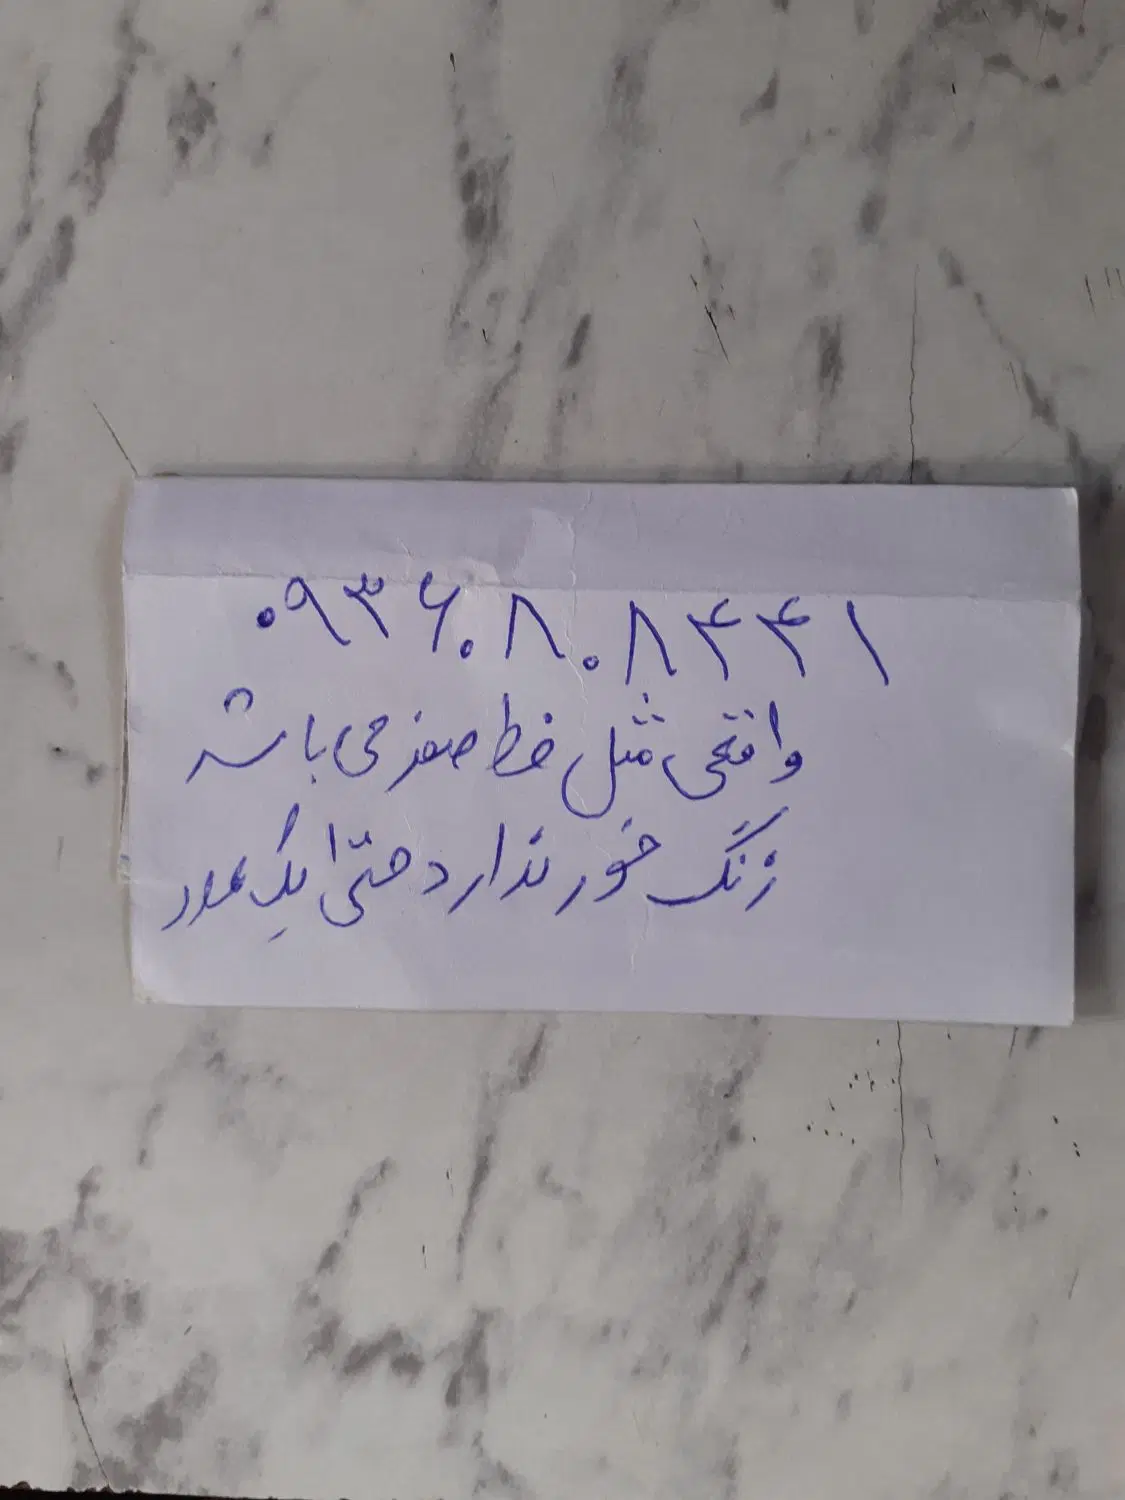 ۰۹۳۶.۸.۸۴۴۱
واقعی مثل خط صفر می باشد
زنگ خور ندارد حتّی یک عدد